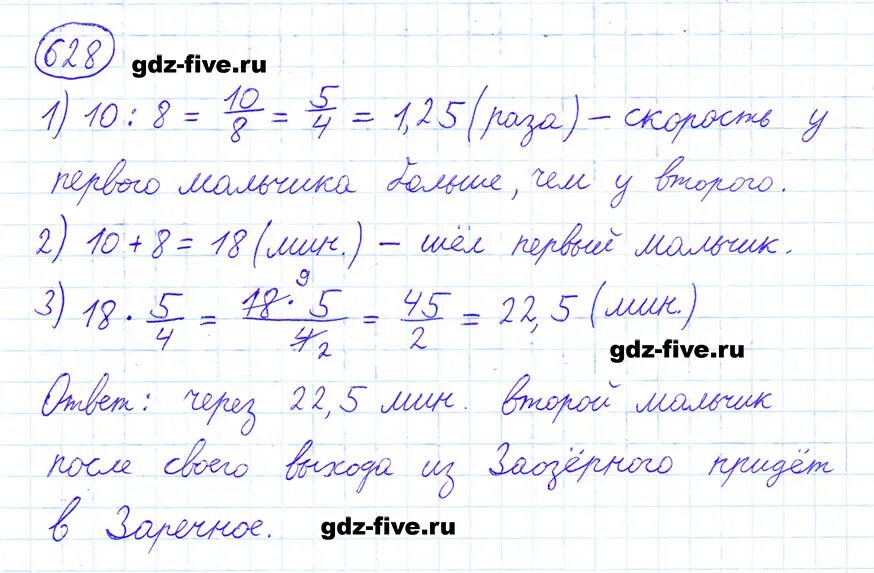 628
gdz-five.ru
1) 10 : 8 = 10/8 = 5/4 = 1,25 (раза) – скорость у
первого мальчика больше, чем у второго.
2) 10 + 8 = 18 (мин.) – шёл первый мальчик.
3) 18 · 5/4 = 18 9 · 5/4 2 = 45/2 = 22,5 (мин.)
gdz-five.ru
Ответ: через 22,5 мин. второй мальчик
после своего выхода из Заозёрного придёт
в Заречное.
gdz-five.ru